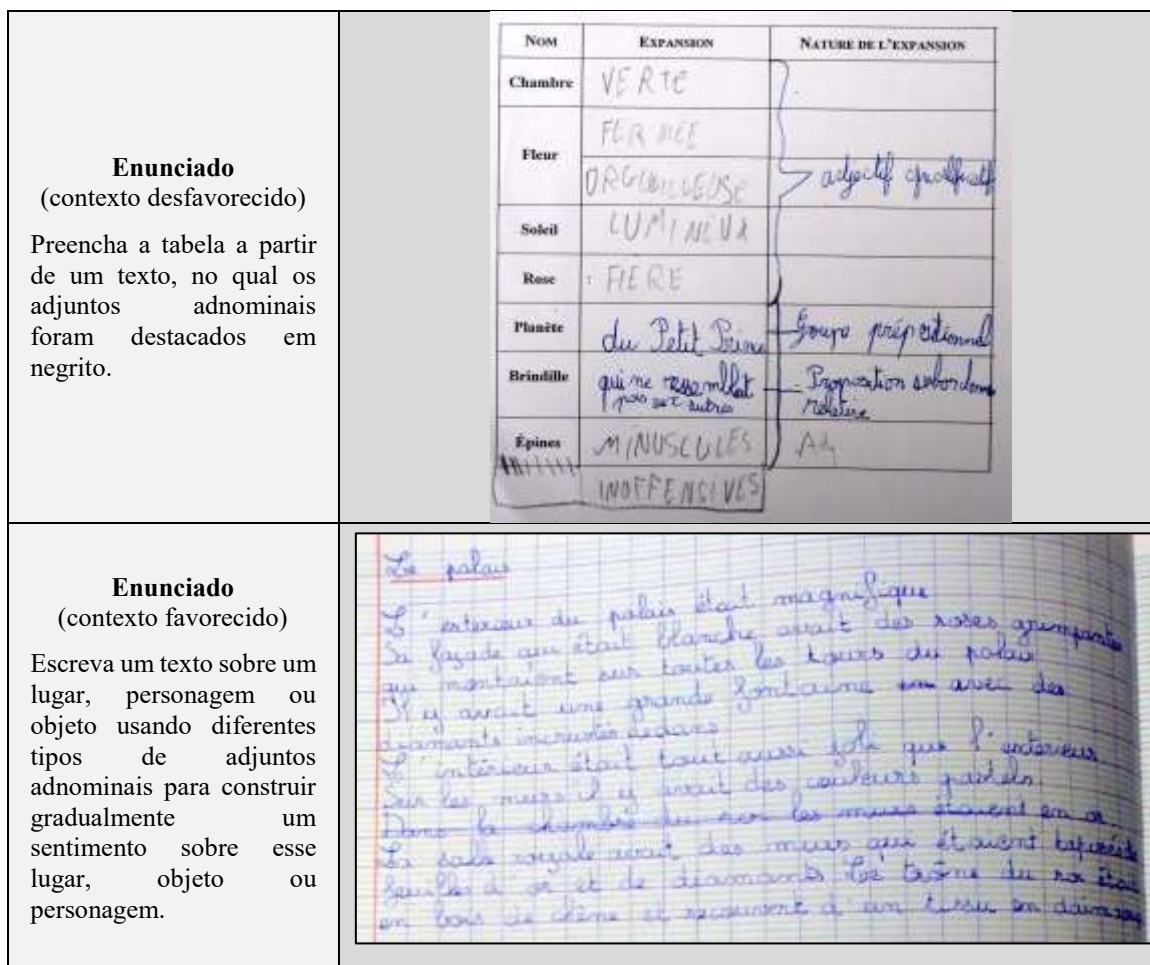 Enunciado
(contexto desfavorecido)
Preencha a tabela a partir
de um texto, no qual os
adjuntos adnominais
foram destacados em
negrito.
NOM EXPANSION NATURE DE L'EXPANSION
Chambre VERTE
Fleur
ORGUEILLEUSE adjectif qualificatif
Soleil LUMINEUX
Rose FIERE
Planète du Petit Prince Groupe prépositionnel
Brindille qui ne ressemblait Proposition subordonnée
pas aux autres relative
Épines MINUSCULES Adj
INOFFENSIVES
Enunciado
(contexto favorecido)
Escreva um texto sobre um
lugar, personagem ou
objeto usando diferentes
tipos de adjuntos
adnominais para construir
gradualmente um
sentimento sobre esse
lugar, objeto ou
personagem.
Le palais
L'exterieur du palais était magnifique
Sa façade qui était blanche avait des roses grimpantes
qui montaient sur toutes les tours du palais
Il y avait une grande fontaine avec des
diamants incrustés dedans
L'intérieur était tout aussi joli que l'exterieur
Sur les murs il y avait des couleurs pastels.
Dans la chambre du roi les murs étaient en or
La salle royale avait des murs qui étaient
feuilles d'or et de diamants Le trône du roi était
en bois de chêne et recouvert d'un tissu en daim